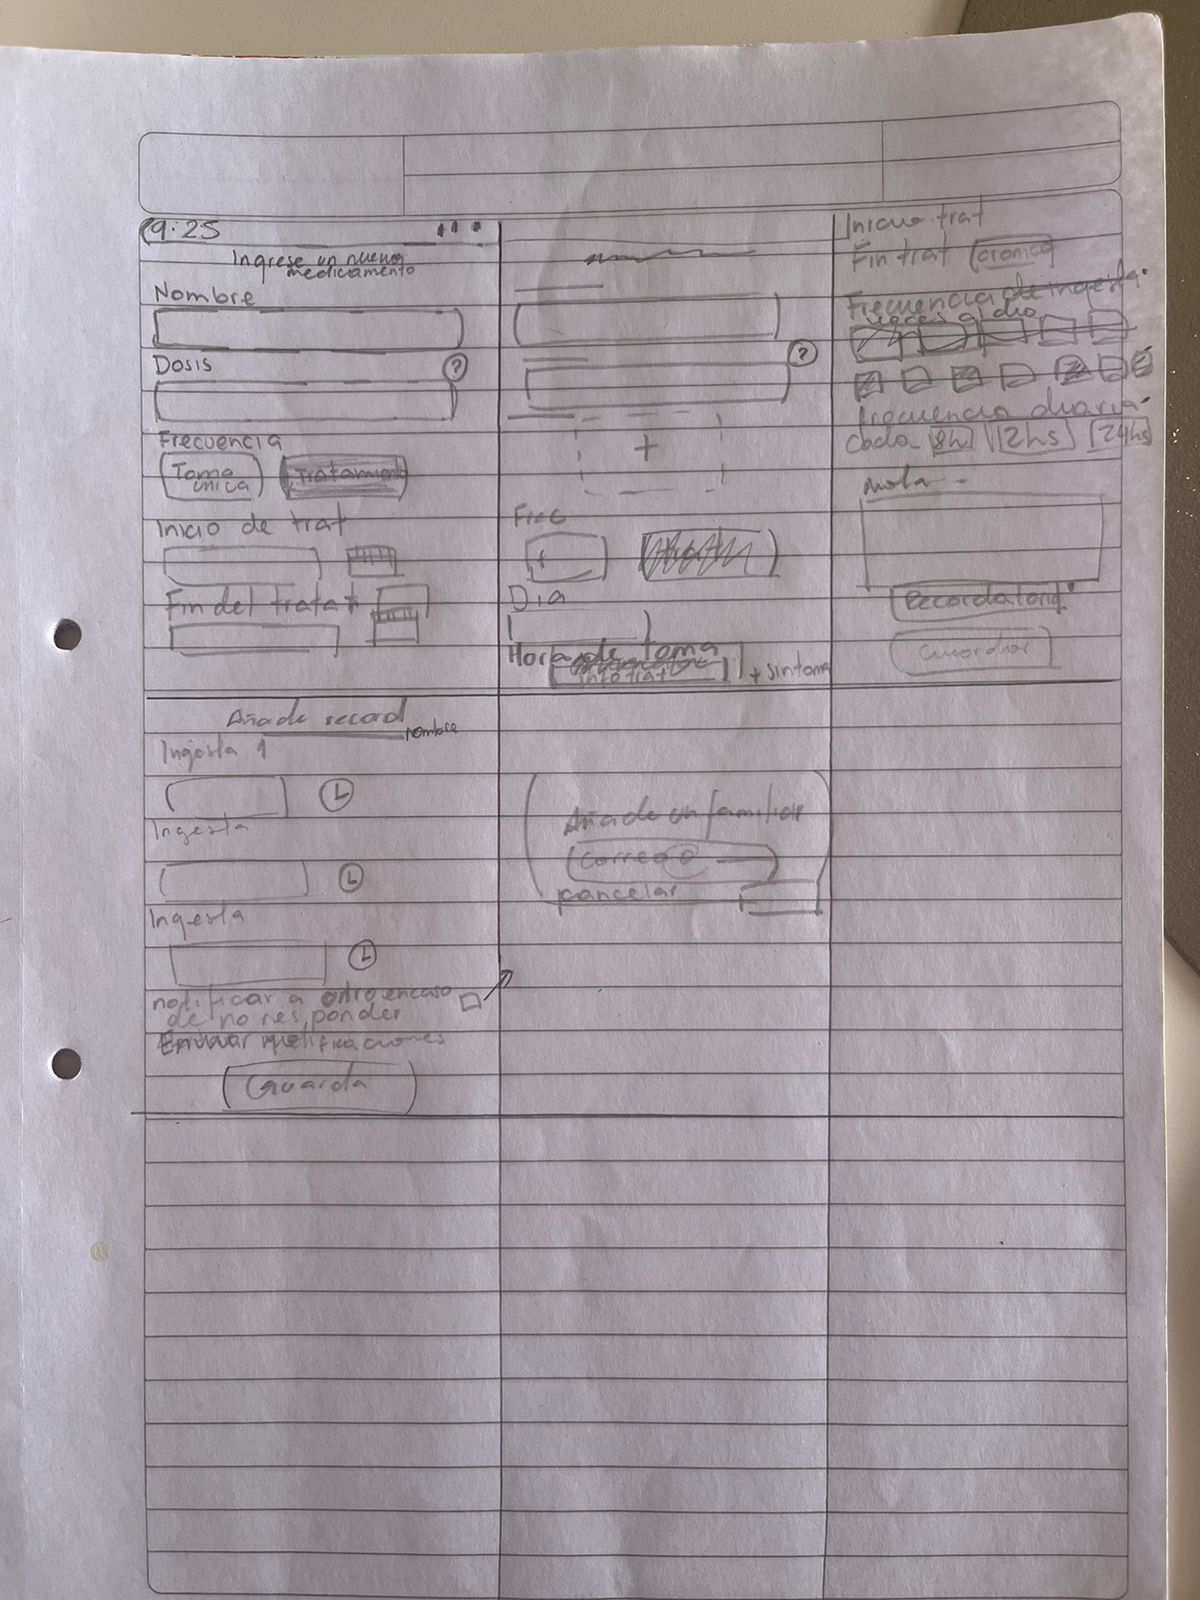 9:25
Ingrese un nuevo
medicamento
Nombre
Dosis
?
Frecuencia
Toma
única
Tratamient
Inicio de trat
Fin del trata
?
+
Frec
Dia
Hora de toma
info trat
+ sintoma
Inicio trat
Fin trat
cronico
Frecuencia de ingesta
veces al dia
frecuencia diaria
Cada 8h 12hs 24hs
Nota
Recordatorio
Guardar
Añade record
nombre
Ingesta 1
Ingesta
Ingesta
notificar a otro en caso
de no responder
Enviar notificaciones
Guarda
Añade un familiar
correo @
cancelar